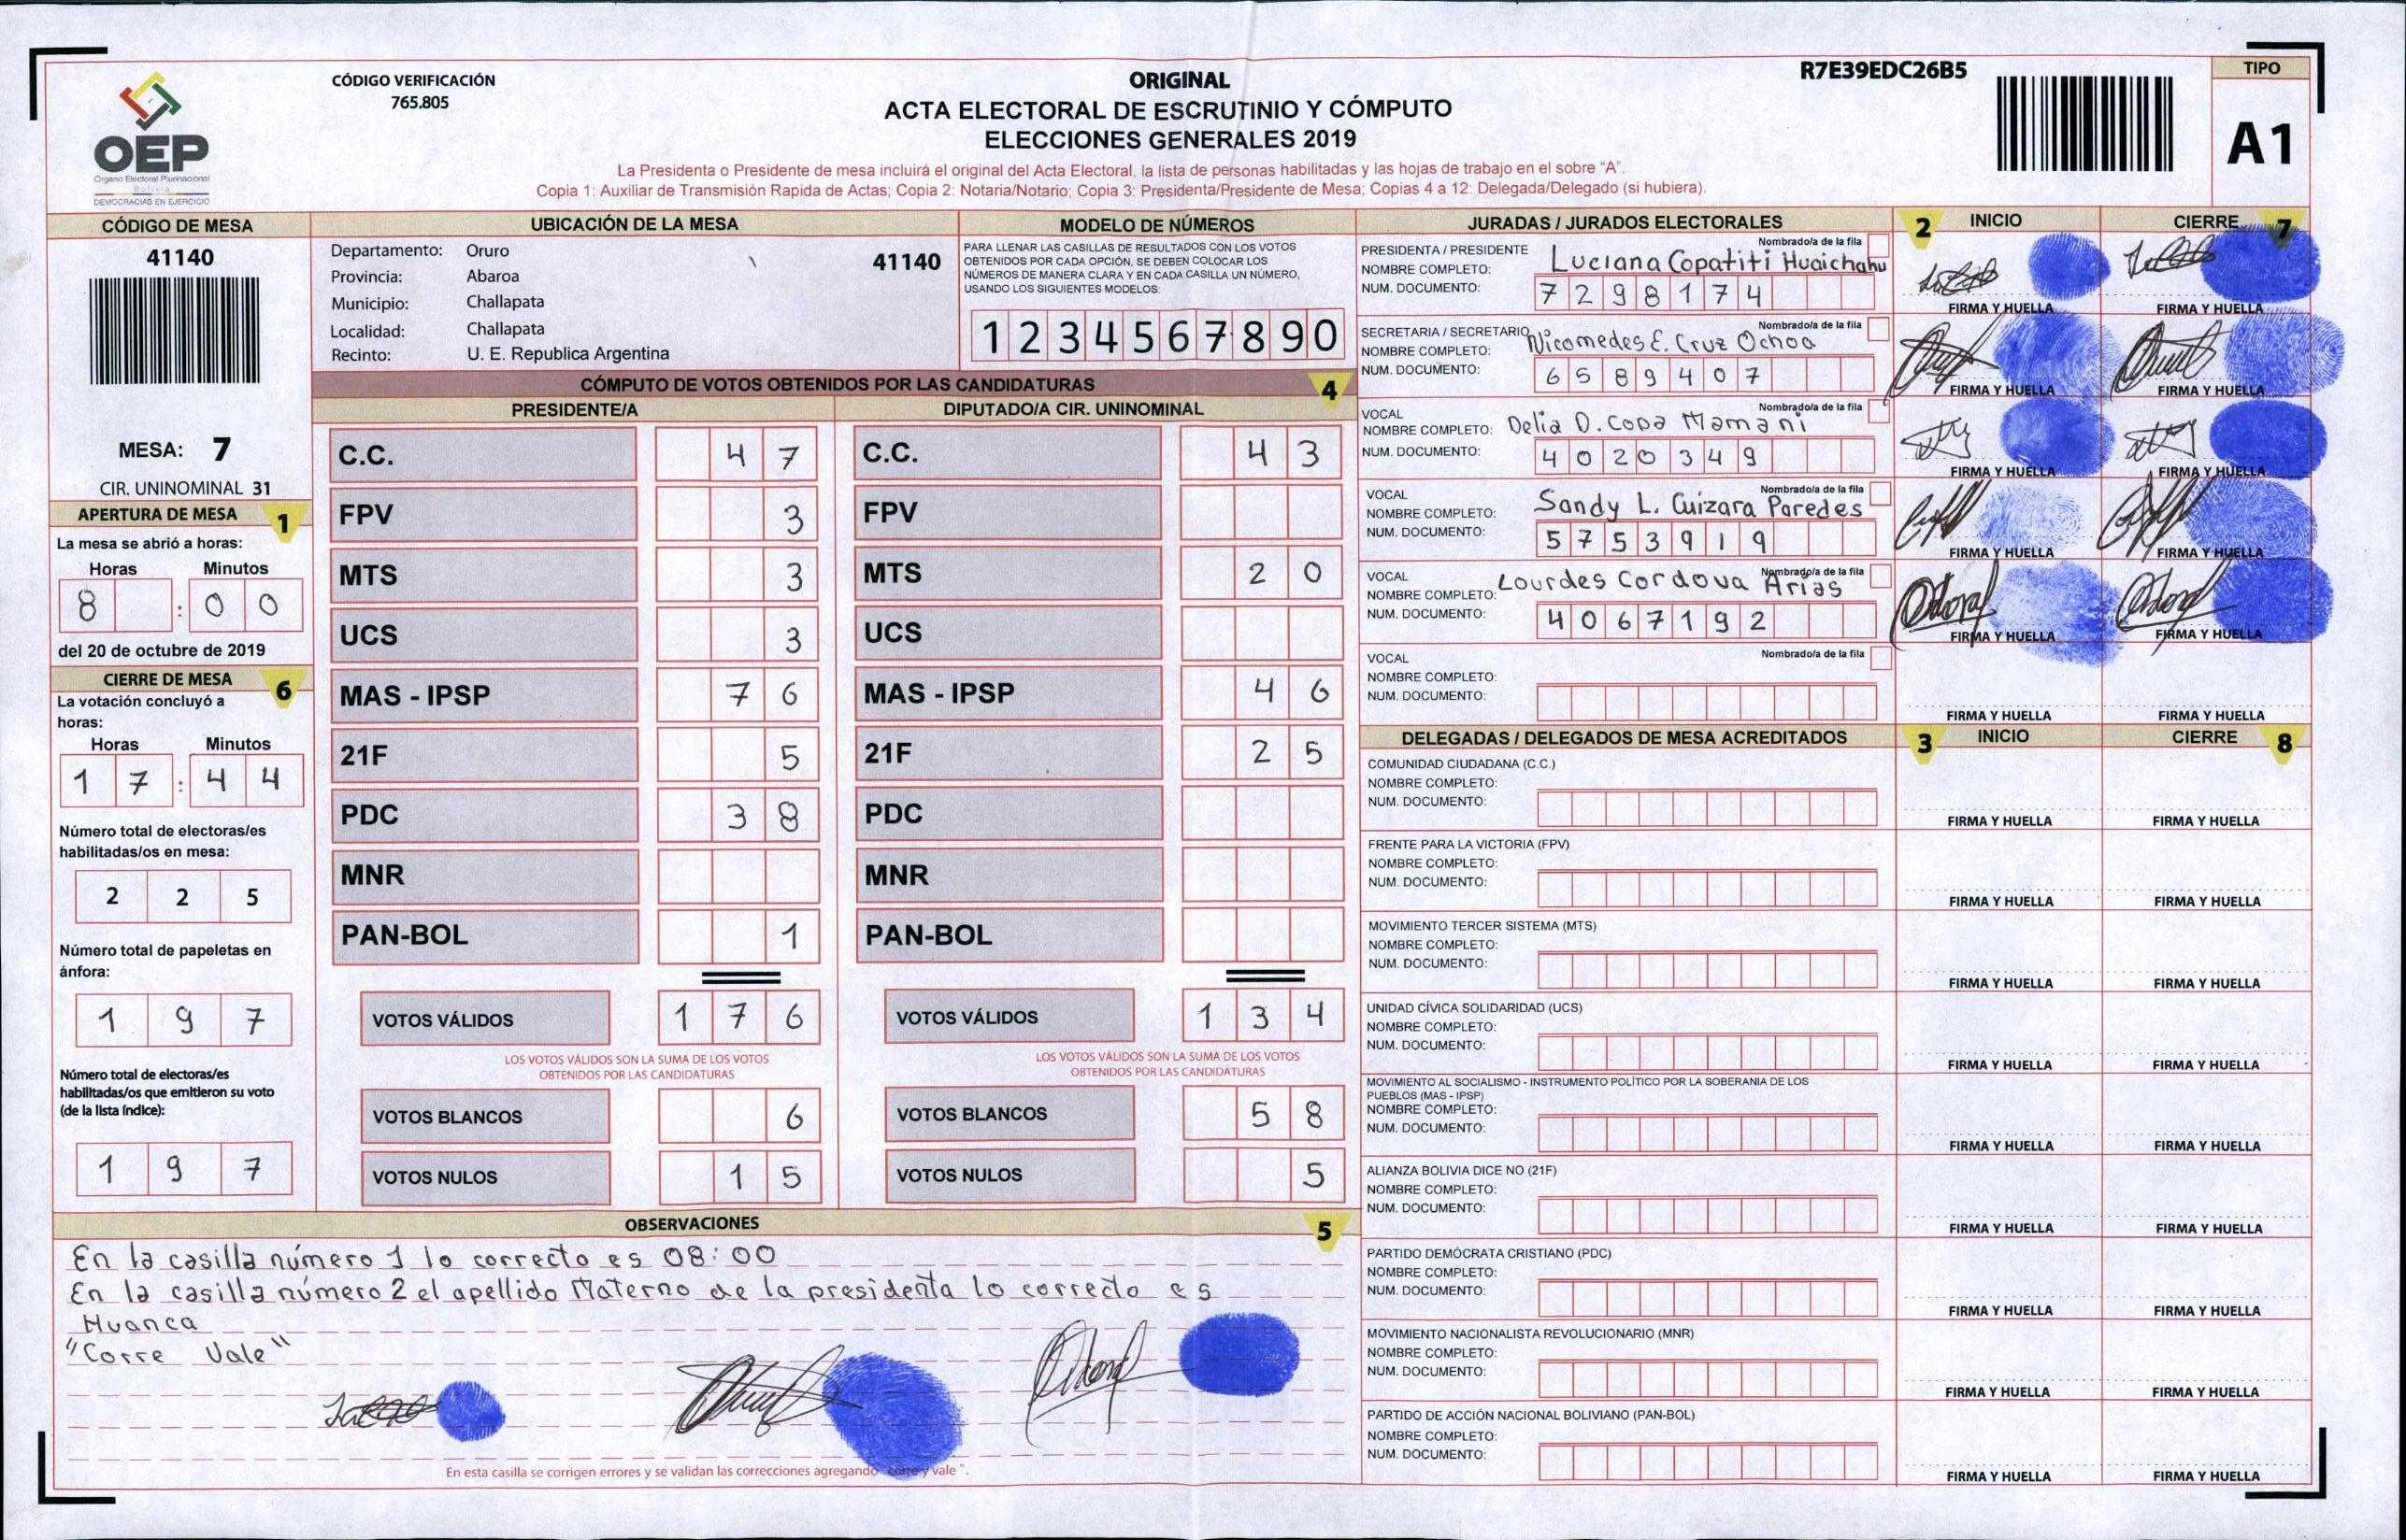 OEP
Órgano Electoral Plurinacional
Bolivia
DEMOCRACIAS EN EJERCICIO
CÓDIGO VERIFICACIÓN
765.805
ORIGINAL
ACTA ELECTORAL DE ESCRUTINIO Y CÓMPUTO
ELECCIONES GENERALES 2019
La Presidenta o Presidente de mesa incluirá el original del Acta Electoral, la lista de personas habilitadas y las hojas de trabajo en el sobre "A".
Copia 1: Auxiliar de Transmisión Rapida de Actas; Copia 2: Notaria/Notario; Copia 3: Presidenta/Presidente de Mesa; Copias 4 a 12: Delegada/Delegado (si hubiera).
R7E39EDC26B5
TIPO
A1
CÓDIGO DE MESA
41140
MESA: 7
CIR. UNINOMINAL 31
APERTURA DE MESA 1
La mesa se abrió a horas:
Horas Minutos
8 : 0 0
del 20 de octubre de 2019
CIERRE DE MESA 6
La votación concluyó a
horas:
Horas Minutos
1 7 : 4 4
Número total de electoras/es
habilitadas/os en mesa:
2 2 5
Número total de papeletas en
ánfora:
1 9 7
Número total de electoras/es
habilitadas/os que emitieron su voto
(de la lista índice):
1 9 7
UBICACIÓN DE LA MESA
Departamento: Oruro 41140
Provincia: Abaroa
Municipio: Challapata
Localidad: Challapata
Recinto: U. E. Republica Argentina
MODELO DE NÚMEROS
PARA LLENAR LAS CASILLAS DE RESULTADOS CON LOS VOTOS
OBTENIDOS POR CADA OPCIÓN, SE DEBEN COLOCAR LOS
NÚMEROS DE MANERA CLARA Y EN CADA CASILLA UN NÚMERO,
USANDO LOS SIGUIENTES MODELOS:
1 2 3 4 5 6 7 8 9 0
CÓMPUTO DE VOTOS OBTENIDOS POR LAS CANDIDATURAS 4
PRESIDENTE/A DIPUTADO/A CIR. UNINOMINAL
C.C. 4 7 C.C. 4 3
FPV 3 FPV
MTS 3 MTS 2 0
UCS 3 UCS
MAS - IPSP 7 6 MAS - IPSP 4 6
21F 5 21F 2 5
PDC 3 8 PDC
MNR MNR
PAN-BOL 1 PAN-BOL
VOTOS VÁLIDOS 1 7 6 VOTOS VÁLIDOS 1 3 4
LOS VOTOS VÁLIDOS SON LA SUMA DE LOS VOTOS LOS VOTOS VÁLIDOS SON LA SUMA DE LOS VOTOS
OBTENIDOS POR LAS CANDIDATURAS OBTENIDOS POR LAS CANDIDATURAS
VOTOS BLANCOS 6 VOTOS BLANCOS 5 8
VOTOS NULOS 1 5 VOTOS NULOS 5
OBSERVACIONES 5
En la casilla número 1 lo correcto es 08:00
En la casilla número 2 el apellido Materno de la presidenta lo correcto es
Huanca
"Corre Vale"
En esta casilla se corrigen errores y se validan las correcciones agregando "corre y vale".
JURADAS / JURADOS ELECTORALES 2 INICIO CIERRE 7
PRESIDENTA / PRESIDENTE Nombrado/a de la fila
NOMBRE COMPLETO: Luciana Copatiti Huaichahu
NUM. DOCUMENTO: 7 2 9 8 1 7 4
FIRMA Y HUELLA FIRMA Y HUELLA
SECRETARIA / SECRETARIO Nombrado/a de la fila
NOMBRE COMPLETO: Nicomedes E. Cruz Ochoa
NUM. DOCUMENTO: 6 5 8 9 4 0 7
FIRMA Y HUELLA FIRMA Y HUELLA
VOCAL Nombrado/a de la fila
NOMBRE COMPLETO: Delia D. Copa Mamani
NUM. DOCUMENTO: 4 0 2 0 3 4 9
FIRMA Y HUELLA FIRMA Y HUELLA
VOCAL Nombrado/a de la fila
NOMBRE COMPLETO: Sandy L. Cuizara Paredes
NUM. DOCUMENTO: 5 7 5 3 9 1 9
FIRMA Y HUELLA FIRMA Y HUELLA
VOCAL Nombrado/a de la fila
NOMBRE COMPLETO: Lourdes Cordova Arias
NUM. DOCUMENTO: 4 0 6 7 1 9 2
FIRMA Y HUELLA FIRMA Y HUELLA
VOCAL Nombrado/a de la fila
NOMBRE COMPLETO:
NUM. DOCUMENTO:
FIRMA Y HUELLA FIRMA Y HUELLA
DELEGADAS / DELEGADOS DE MESA ACREDITADOS 3 INICIO CIERRE 8
COMUNIDAD CIUDADANA (C.C.)
NOMBRE COMPLETO:
NUM. DOCUMENTO:
FIRMA Y HUELLA FIRMA Y HUELLA
FRENTE PARA LA VICTORIA (FPV)
NOMBRE COMPLETO:
NUM. DOCUMENTO:
FIRMA Y HUELLA FIRMA Y HUELLA
MOVIMIENTO TERCER SISTEMA (MTS)
NOMBRE COMPLETO:
NUM. DOCUMENTO:
FIRMA Y HUELLA FIRMA Y HUELLA
UNIDAD CÍVICA SOLIDARIDAD (UCS)
NOMBRE COMPLETO:
NUM. DOCUMENTO:
FIRMA Y HUELLA FIRMA Y HUELLA
MOVIMIENTO AL SOCIALISMO - INSTRUMENTO POLÍTICO POR LA SOBERANIA DE LOS
PUEBLOS (MAS - IPSP)
NOMBRE COMPLETO:
NUM. DOCUMENTO:
FIRMA Y HUELLA FIRMA Y HUELLA
ALIANZA BOLIVIA DICE NO (21F)
NOMBRE COMPLETO:
NUM. DOCUMENTO:
FIRMA Y HUELLA FIRMA Y HUELLA
PARTIDO DEMÓCRATA CRISTIANO (PDC)
NOMBRE COMPLETO:
NUM. DOCUMENTO:
FIRMA Y HUELLA FIRMA Y HUELLA
MOVIMIENTO NACIONALISTA REVOLUCIONARIO (MNR)
NOMBRE COMPLETO:
NUM. DOCUMENTO:
FIRMA Y HUELLA FIRMA Y HUELLA
PARTIDO DE ACCIÓN NACIONAL BOLIVIANO (PAN-BOL)
NOMBRE COMPLETO:
NUM. DOCUMENTO:
FIRMA Y HUELLA FIRMA Y HUELLA